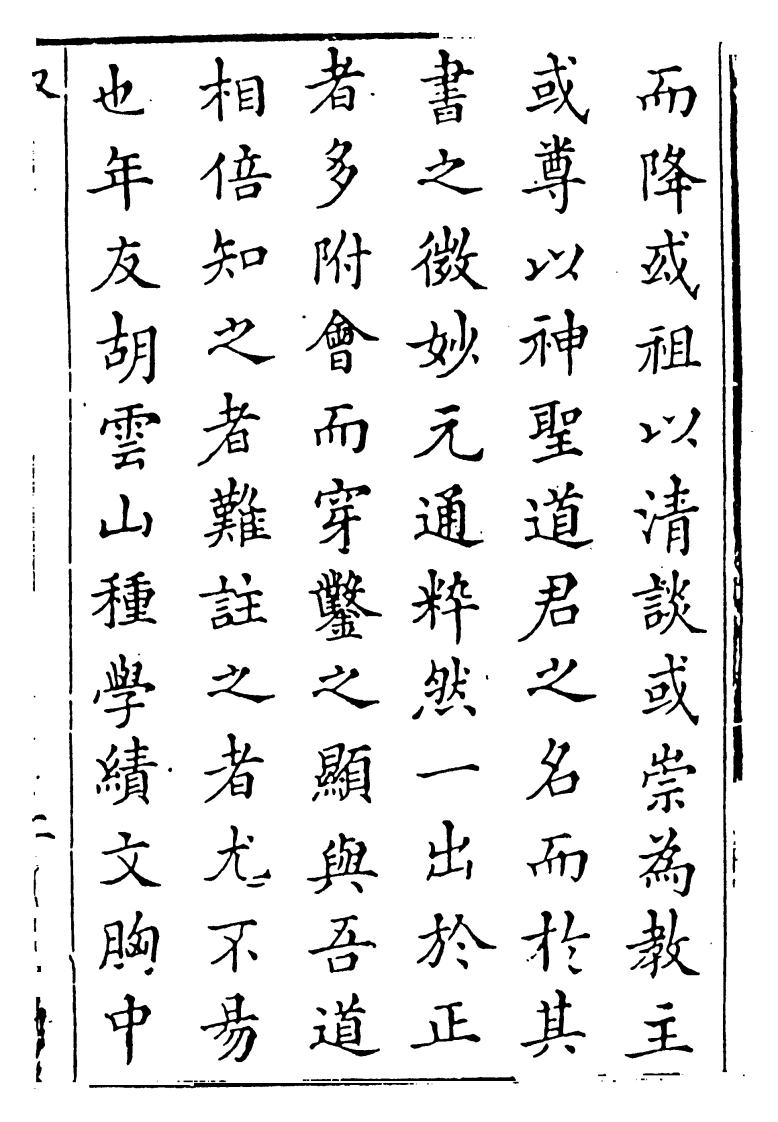 而降或祖以清談或崇為教主
或尊以神聖道君之名而於其
書之微妙元通粹然一出於正
者多附會而穿鑿之顯與吾道
相倍知之者難註之者尤不易
也年友胡雲山種學績文胸中